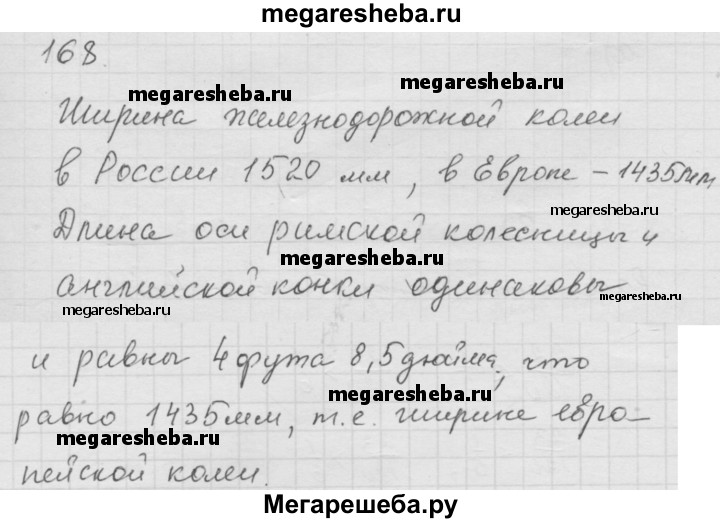 megaresheba.ru
168.
megaresheba.ru
megaresheba.ru
Ширина железнодорожной колеи
в России 1520 мм, в Европе – 1435мм
megaresheba.ru
Длина оси римской колесницы и
megaresheba.ru
английской конки одинаковы
megaresheba.ru
megaresheba.ru
и равны 4 фута 8,5 дюйма, что
megaresheba.ru
равно 1435мм, т.е. ширине евро-
megaresheba.ru
пейской колеи.
Мегарешеба.ру